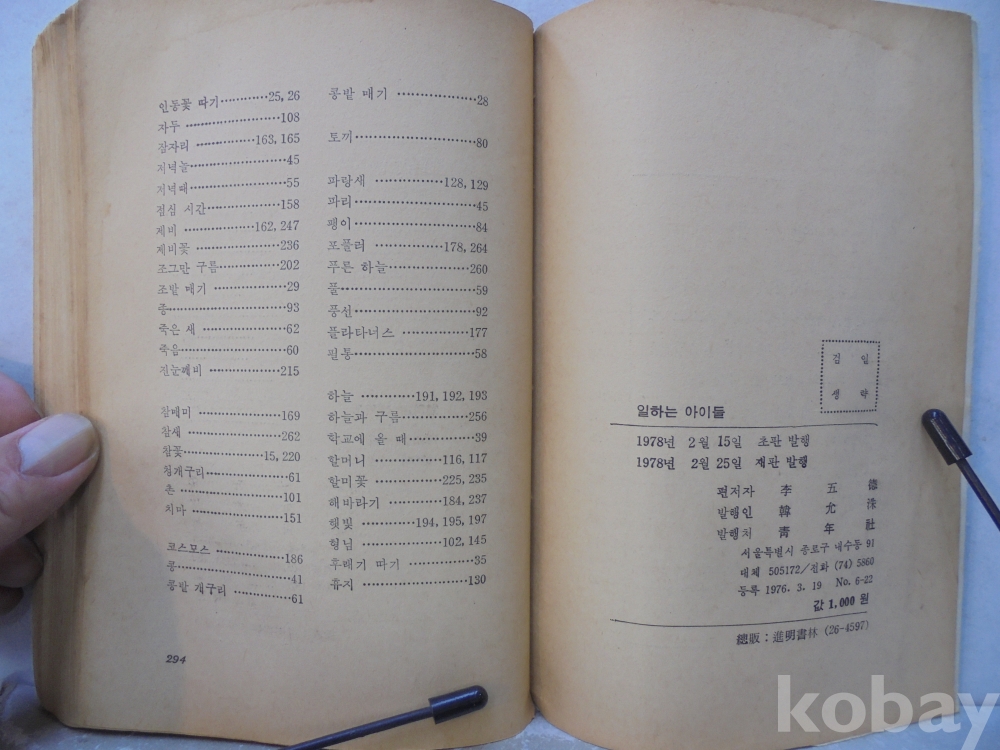 인동꽃 따기…………25, 26
자두 ……………………108
잠자리 ……………163, 165
저녁놀……………………45
저녁때……………………55
점심 시간………………158
제비 ………………162, 247
제비꽃…………………236
조그만 구름……………202
조밭 매기 ………………29
종…………………………93
죽은 새 …………………62
죽음………………………60
진눈깨비………………215
참매미 …………………169
참새……………………262
참꽃…………………15, 220
청개구리…………………61
촌………………………101
치마……………………151
코스모스………………186
콩…………………………41
콩밭 개구리 ……………61
294
콩밭 매기 ………………28
토끼………………………80
파랑새 ……………128, 129
파리………………………45
팽이………………………84
포플러 ……………178, 264
푸른 하늘………………260
풀…………………………59
풍선………………………92
플라타너스 ……………177
필통………………………58
하늘 …………191, 192, 193
하늘과 구름……………256
학교에 올 때……………39
할머니 ……………116, 117
할미꽃 ……………225, 235
해바라기 …………184, 237
햇빛 …………194, 195, 197
형님 ………………102, 145
후래기 따기 ……………35
휴지……………………130
검 인
생 략
일하는 아이들
1978년 2월 15일 초판 발행
1978년 2월 25일 재판 발행
편저자 李 五 德
발행인 韓 允 洙
발행처 靑 年 社
서울특별시 종로구 내수동 91
대체 505172/전화 (74) 5860
등록 1976. 3. 19 No. 6-22
값 1,000 원
總販: 進明書林 (26-4597)
kobay